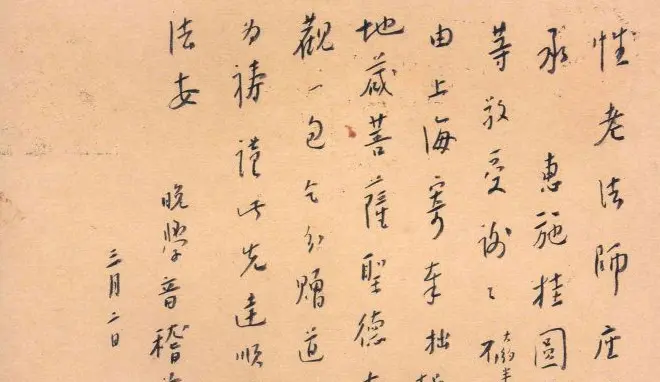 性老法師座
承 惠施桂圓
等敬受謝〻 不
大約半
由上海寄奉拙
地藏菩薩聖德大
觀一包乞分贈道
為禱謹此先達順
法安
晚學音稽
三月二日